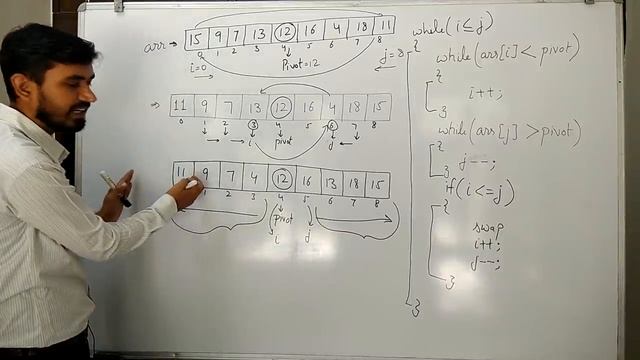 arr → 15 9 7 13 12 16 4 18 11
0 1 2 3 4 5 6 7 8
i=0 Pivot=12 j=8
⇒ 11 9 7 13 12 16 4 18 15
0 1 2 3 4 5 6 7 8
→ → i pivot j ← ←
11 9 7 4 12 16 13 18 15
2 3 4 5 6 7 8
pivot
i j
while(i≤j)
{
while(arr[i]<pivot)
{
i++;
}
while(arr[j]>pivot)
{
j--;
}
if(i<=j)
{
swap
i++;
j--;
}
}